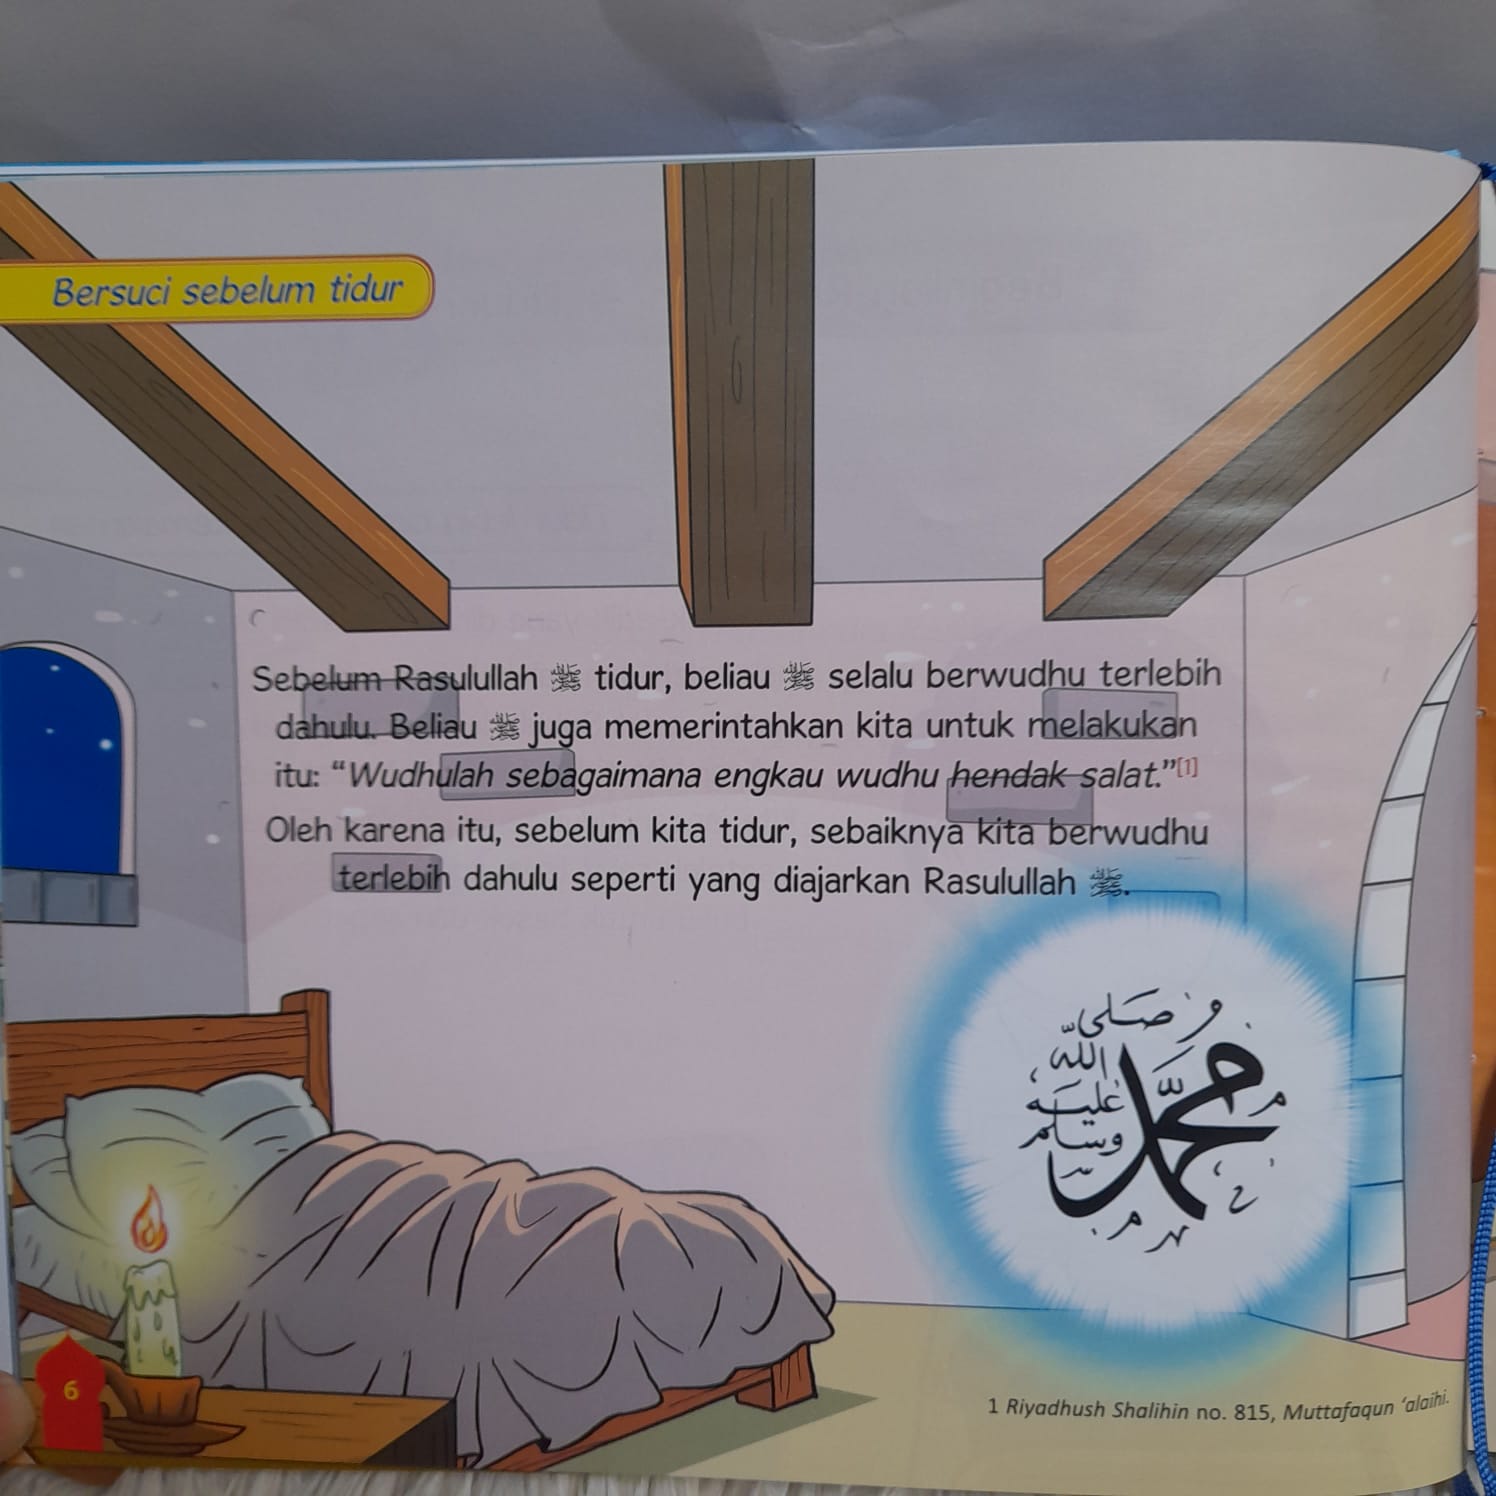 Bersuci sebelum tidur
Sebelum Rasulullah ﷺ tidur, beliau ﷺ selalu berwudhu terlebih
dahulu. Beliau ﷺ juga memerintahkan kita untuk melakukan
itu: “Wudhulah sebagaimana engkau wudhu hendak salat.”[1]
Oleh karena itu, sebelum kita tidur, sebaiknya kita berwudhu
terlebih dahulu seperti yang diajarkan Rasulullah ﷺ.
محمد
صلى
الله
عليه
وسلم
1 Riyadhush Shalihin no. 815, Muttafaqun ‘alaihi.
6